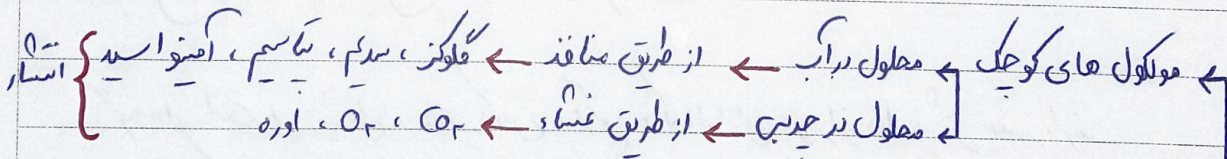 ← مولکول های کوچک ← محلول در آب ← از طریق منافذ ← گلوکز، سدیم، پتاسیم، آمینواسید } انتشار
← محلول در چربی ← از طریق غشاء ← CO۲، O۲، اوره